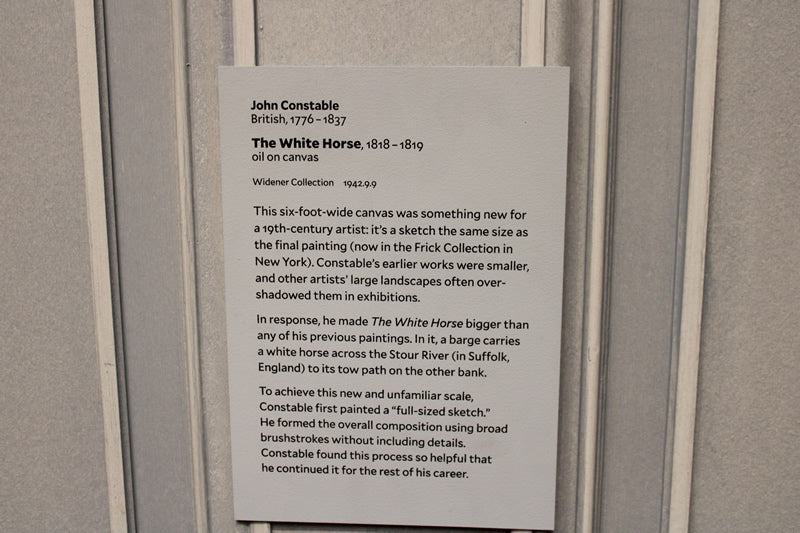 John Constable
British, 1776 – 1837
The White Horse, 1818 – 1819
oil on canvas
Widener Collection 1942.9.9
This six-foot-wide canvas was something new for
a 19th-century artist: it's a sketch the same size as
the final painting (now in the Frick Collection in
New York). Constable's earlier works were smaller,
and other artists' large landscapes often over-
shadowed them in exhibitions.
In response, he made The White Horse bigger than
any of his previous paintings. In it, a barge carries
a white horse across the Stour River (in Suffolk,
England) to its tow path on the other bank.
To achieve this new and unfamiliar scale,
Constable first painted a “full-sized sketch.”
He formed the overall composition using broad
brushstrokes without including details.
Constable found this process so helpful that
he continued it for the rest of his career.